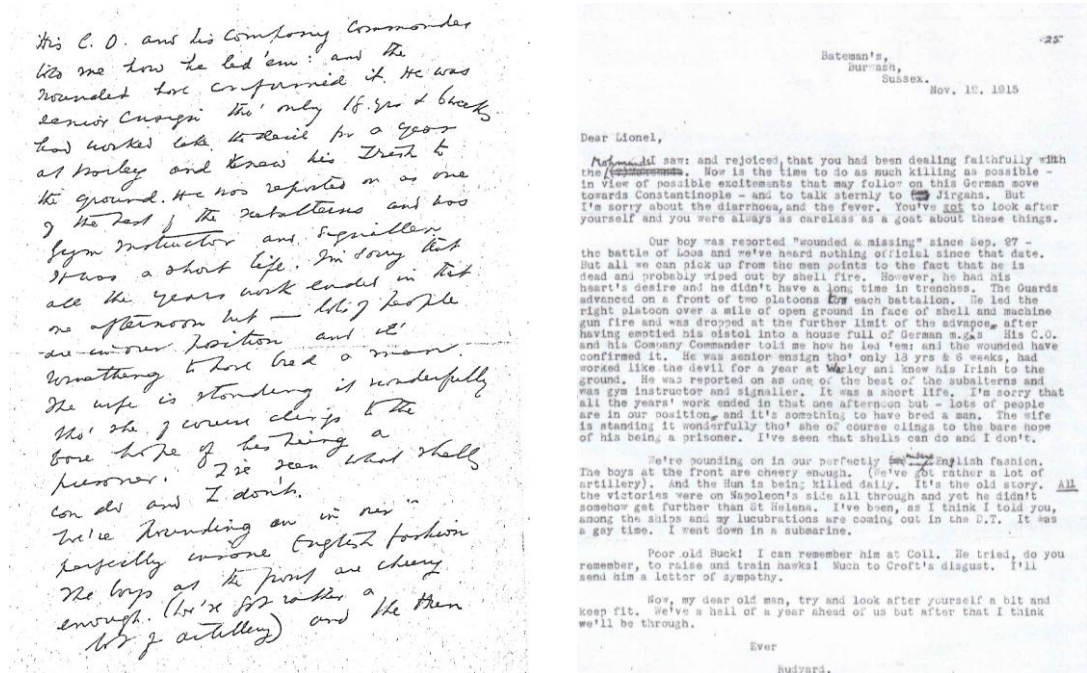 His C.O. and his Company Commander
told me how he led 'em: and the
wounded have confirmed it. He was
senior ensign tho' only 18 yrs & 6 weeks
had worked like the devil for a year
at Warley and knew his Irish to
the ground. He was reported on as one
of the best of the subalterns and was
gym instructor and signaller
It was a short life. I'm sorry that
all the years work ended in that
one afternoon but — lots of people
are in our position and it's
something to have bred a man.
The wife is standing it wonderfully
tho' she of course clings to the
bare hope of his being a
prisoner. I've seen what shells
can do and I don't.
We're pounding on in our
perfectly insane English fashion
The boys at the front are cheery
enough. (We've got rather a
lot of artillery) and the Hun
25
Bateman's,
Burwash,
Sussex.
Nov. 12, 1915
Dear Lionel,
I saw: and rejoiced that you had been dealing faithfully with
the Mohmands. Now is the time to do as much killing as possible -
in view of possible excitements that may follow on this German move
towards Constantinople - and to talk sternly to Jirgahs. But
I'm sorry about the diarrhoea, and the fever. You've got to look after
yourself and you were always as careless as a goat about these things.
Our boy was reported "wounded & missing" since Sep. 27 -
the battle of Loos and we've heard nothing official since that date.
But all we can pick up from the men points to the fact that he is
dead and probably wiped out by shell fire. However, he had his
heart's desire and he didn't have a long time in trenches. The Guards
advanced on a front of two platoons for each battalion. He led the
right platoon over a mile of open ground in face of shell and machine
gun fire and was dropped at the further limit of the advance, after
having emptied his pistol into a house full of German m.g.s His C.O.
and his Company Commander told me how he led 'em: and the wounded have
confirmed it. He was senior ensign tho' only 18 yrs & 6 weeks, had
worked like the devil for a year at Warley and knew his Irish to the
ground. He was reported on as one of the best of the subalterns and
was gym instructor and signaller. It was a short life. I'm sorry that
all the years' work ended in that one afternoon but - lots of people
are in our position, and it's something to have bred a man. The wife
is standing it wonderfully tho' she of course clings to the bare hope
of his being a prisoner. I've seen what shells can do and I don't.
We're pounding on in our perfectly insane English fashion.
The boys at the front are cheery enough. (We've got rather a lot of
artillery). And the Hun is being killed daily. It's the old story. All
the victories were on Napoleon's side all through and yet he didn't
somehow get further than St Helena. I've been, as I think I told you,
among the ships and my lucubrations are coming out in the D.T. It was
a gay time. I went down in a submarine.
Poor old Buck! I can remember him at Coll. He tried, do you
remember, to raise and train hawks! Much to Croft's disgust. I'll
send him a letter of sympathy.
Now, my dear old man, try and look after yourself a bit and
keep fit. We've a hell of a year ahead of us but after that I think
we'll be through.
Ever
Rudyard.